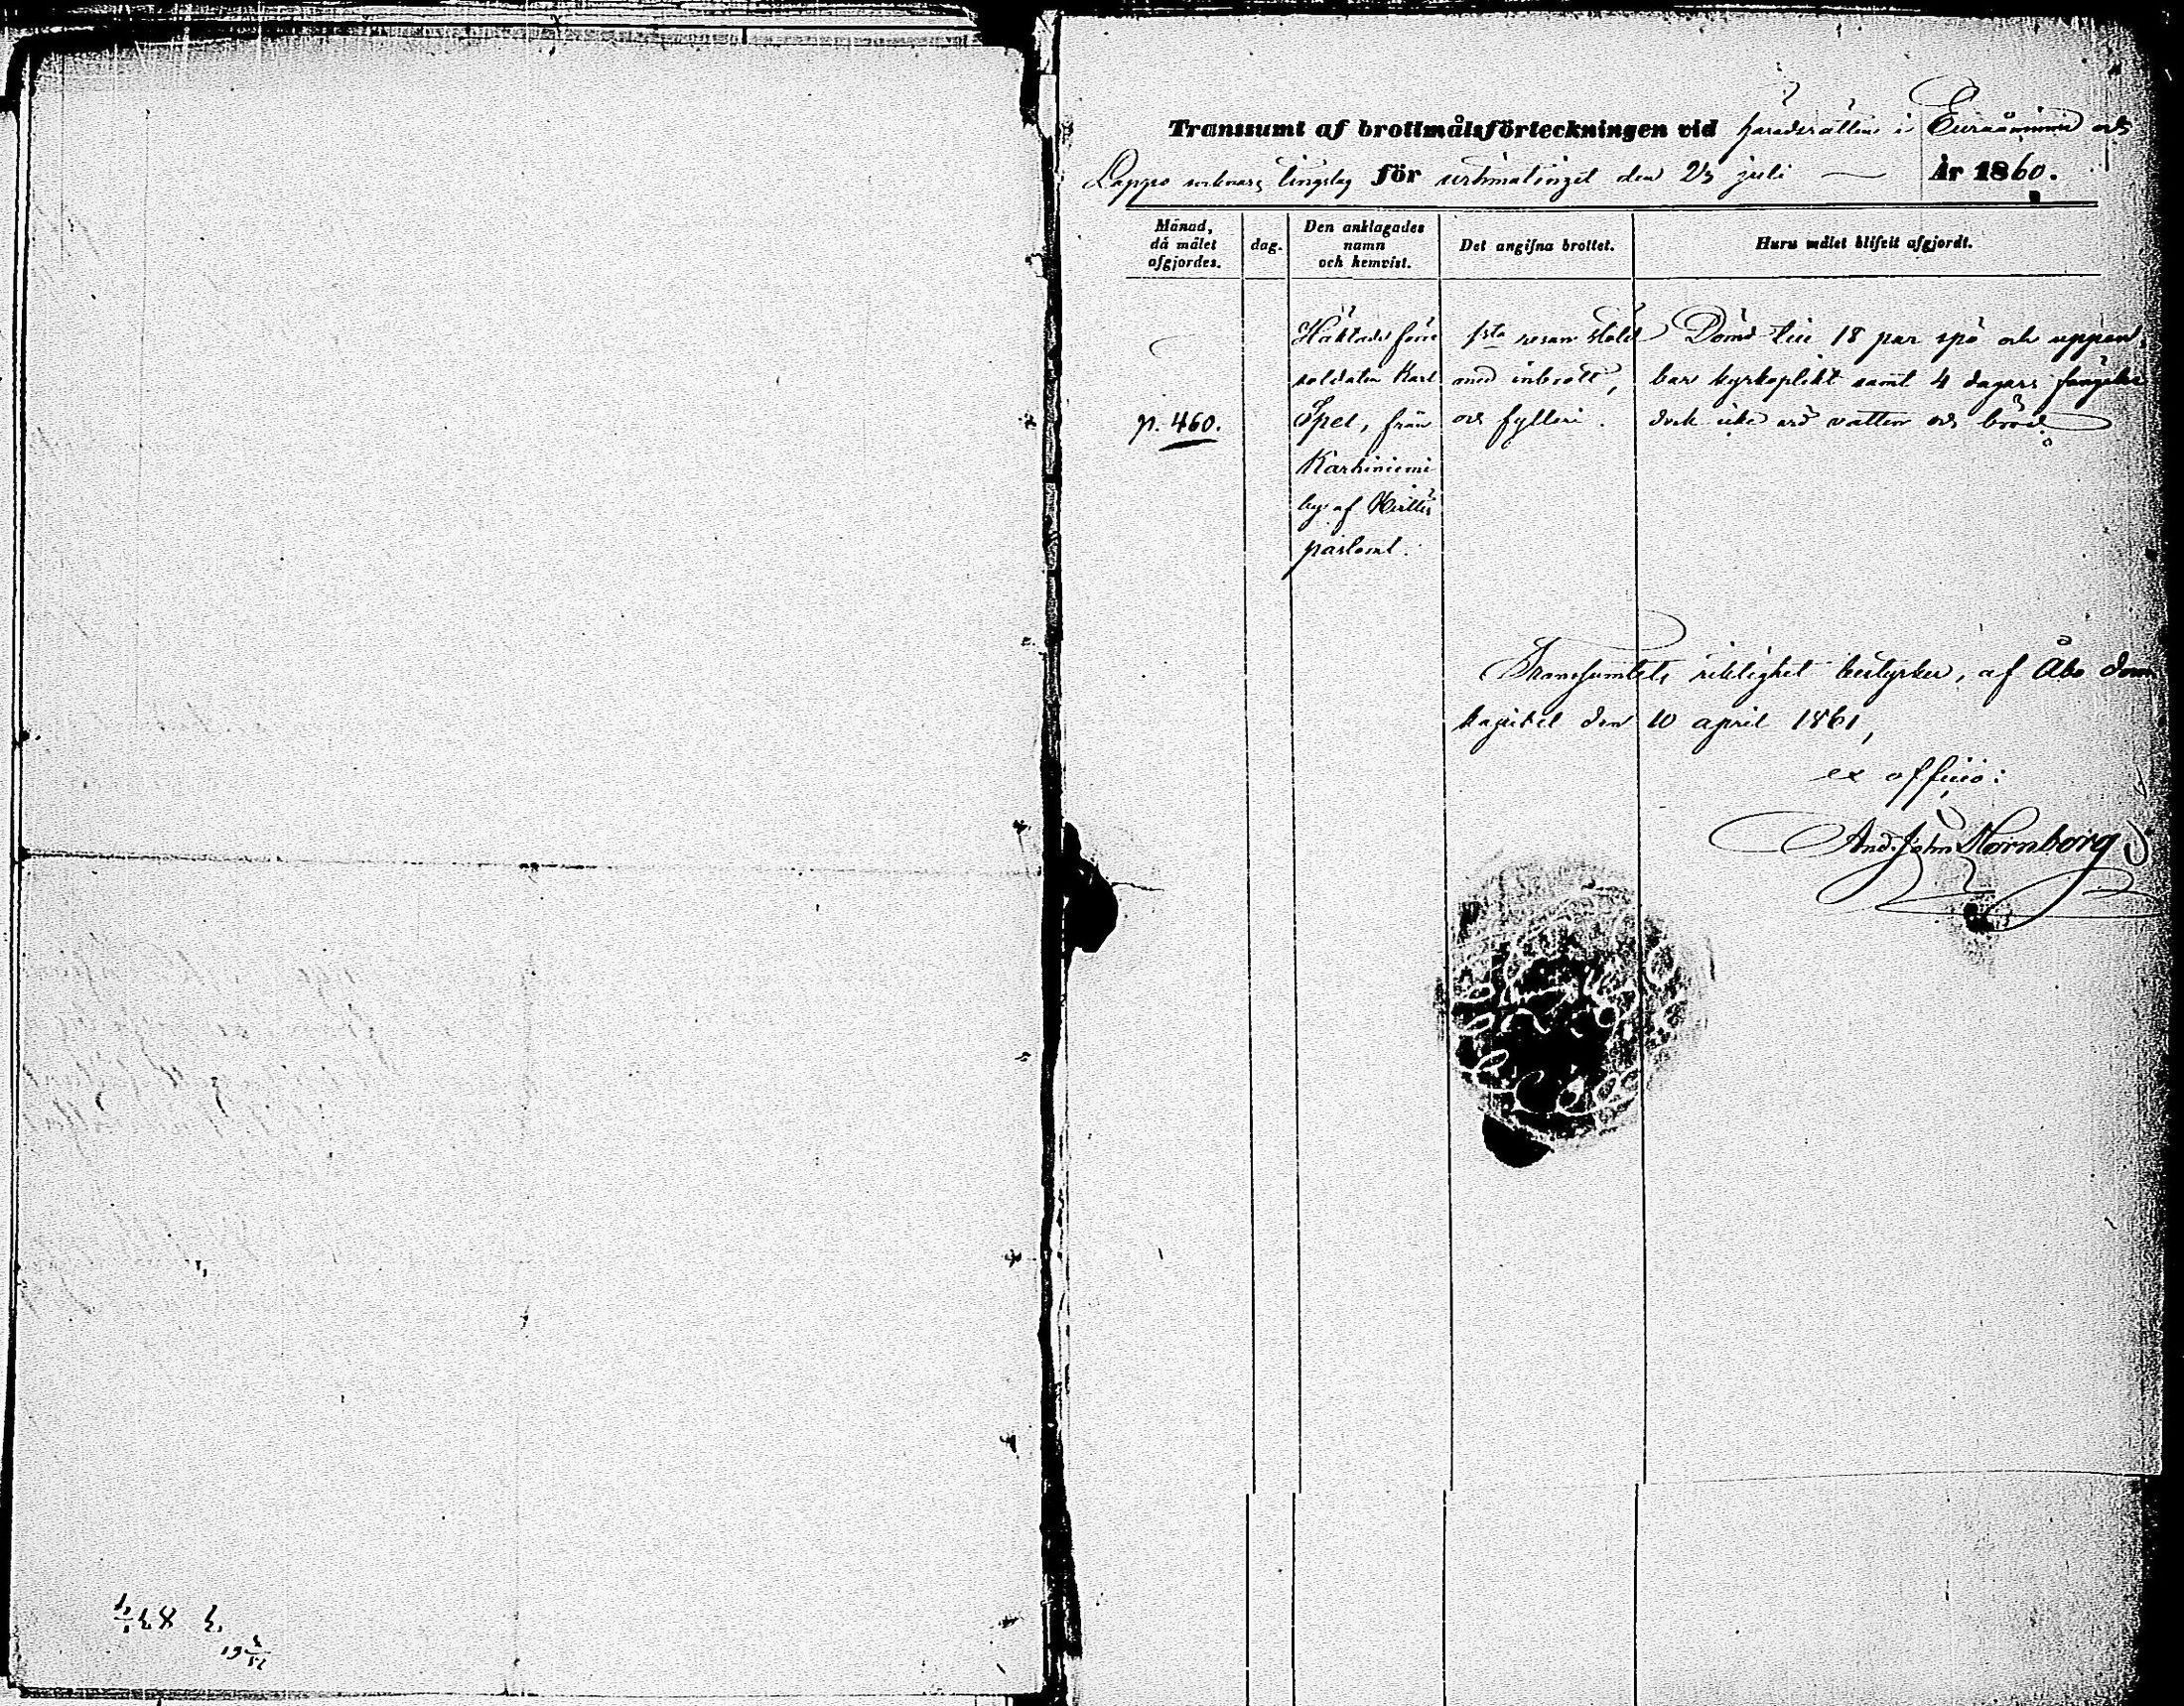 Transsumt af brottmålsförteckningen vid häradsrätten i Euraåminne och
Lappo socknars tingslag för urtimatinget den 25 juli — År 1860.
Månad,
då målet
afgjordes.
dag.
Den anklagades
namn
och hemvist.
Det angifna brottet.
Huru målet blifvit afgjordt.
p. 460.
Häktade förre
soldaten Karl
Spel, från
Karhiniemi
by af Hvittis
pastorat.
1sta resan stöld
med inbrott,
och fylleri.
Dömd till 18 par spö och uppen-
bar kyrkoplikt samt 4 dagars fängelse
dock icke vid vatten och bröd.
Transsumtets riktighet bestyrker, af Åbo dom-
kapitel den 10 april 1861,
ex officio:
And. John Hornborg